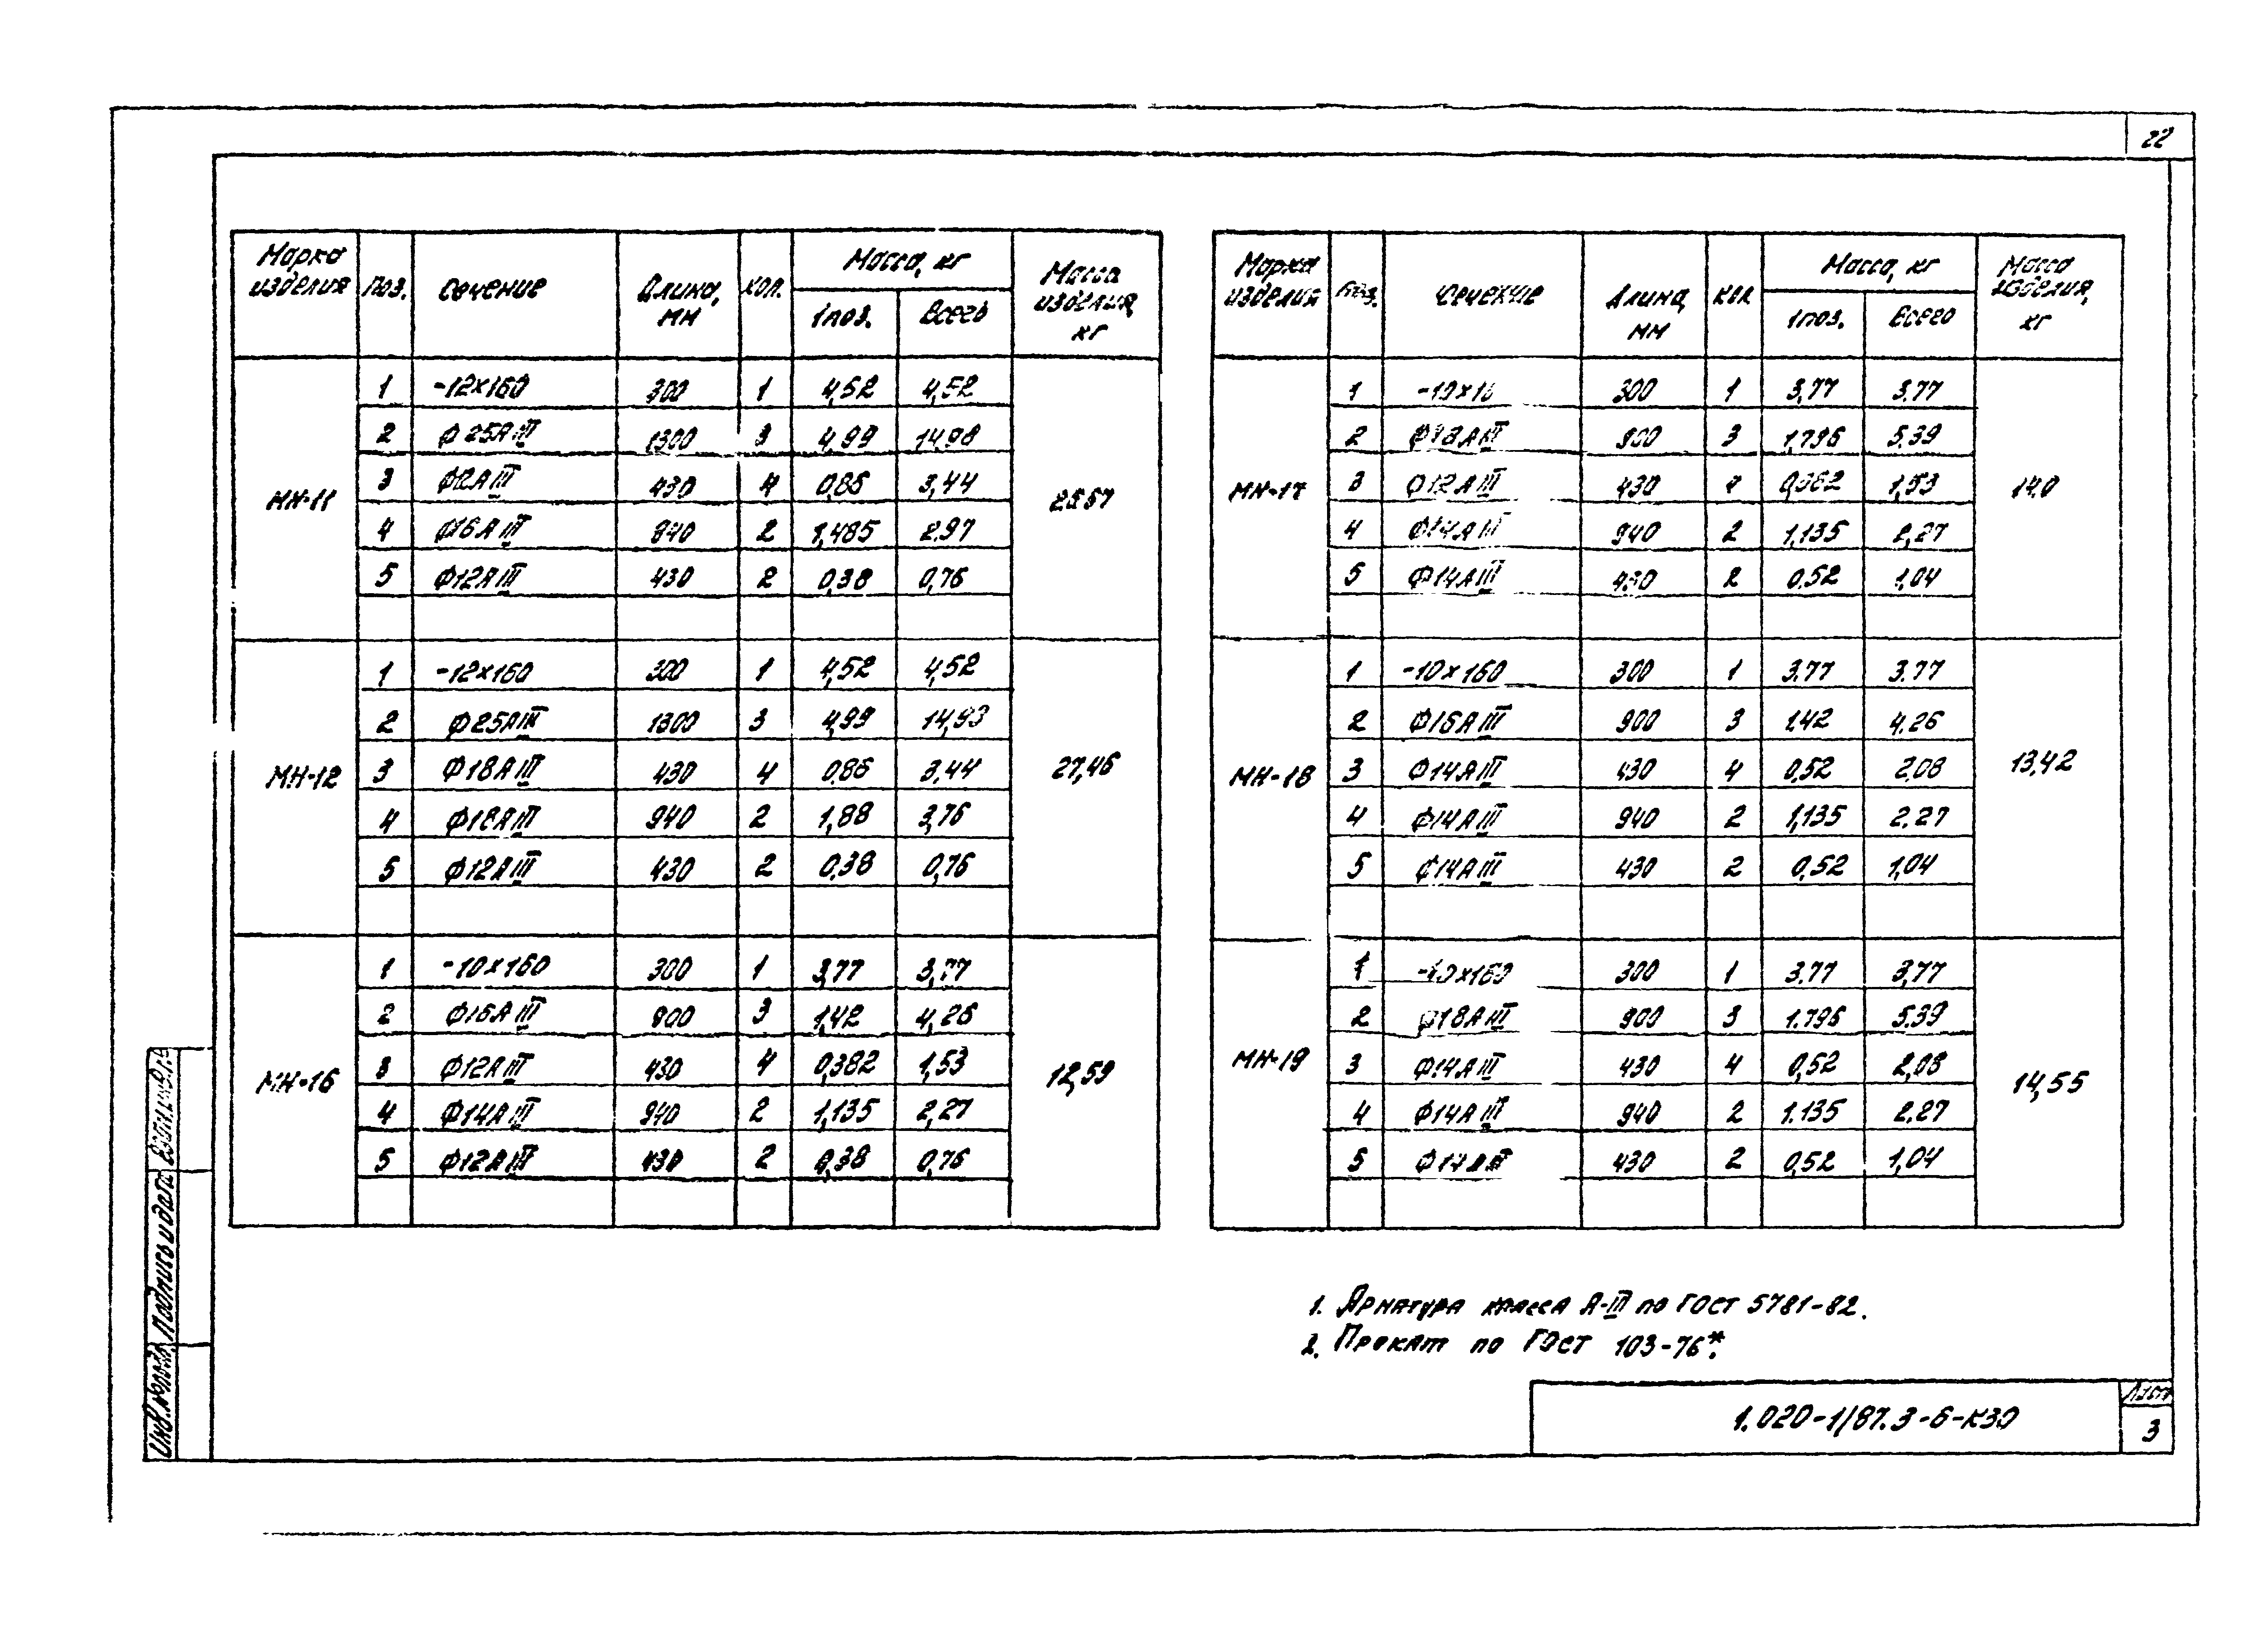 22
Марка изделия Поз. Сечение Длина, мм Кол. Масса, кг 1 поз. Всего Масса изделия, кг
МН-11 26,67
1 -12×160 300 1 4,52 4,52
2 Ф25АIII 1300 3 4,99 14,98
3 АIII 430 4 0,86 3,44
4 Ф16АIII 940 2 1,485 2,97
5 Ф12АIII 430 2 0,38 0,76
МН-12 27,46
1 -12×160 300 1 4,52 4,52
2 Ф25АIII 1300 3 4,99
3 Ф18АIII 430 4 0,86 3,44
4 Ф18АIII 940 2 1,88 3,76
5 Ф12АIII 430 2 0,38 0,76
МН-16 12,59
1 -10×160 300 1 3,77 3,77
2 Ф16АIII 900 3 1,42 4,26
3 Ф12АIII 430 4 0,382 1,53
4 Ф14АIII 940 2 1,135 2,27
5 Ф12АIII 430 2 0,38 0,76
Марка изделия Поз. Сечение Длина, мм Кол Масса, кг 1 поз. Всего Масса изделия, кг
МН-17 14,0
1 300 1 3,77 3,77
2 Ф18АIII 900 3 1,796 5.39
3 Ф12АIII 430 4 0,382 1,53
4 Ф14АIII 940 2 1,135 2,27
5 Ф14АIII 430 2 0.52 1,04
МН-18 13,42
1 -10×160 300 1 3.77 3.77
2 Ф16АIII 900 3 1,42 4.26
3 Ф14АIII 430 4 0,52 2,08
4 Ф14АIII 940 2 1,135 2.27
5 Ф14АIII 430 2 0,52 1,04
МН-19 14,55
1 -10×160 300 1 3.77 3,77
2 Ф18АIII 900 3 1.796 5.39
3 Ф14АIII 430 4 0,52 2,08
4 Ф14АIII 940 2 1.135 2.27
5 Ф14АIII 430 2 0,52 1,04
1. Арматура класса А-III по ГОСТ 5781-82.
2. Прокат по ГОСТ 103-76*.
1.020-1/87.3-6-К30
Лист
3
Инв.№подл. Подпись и дата Взам.инв.№